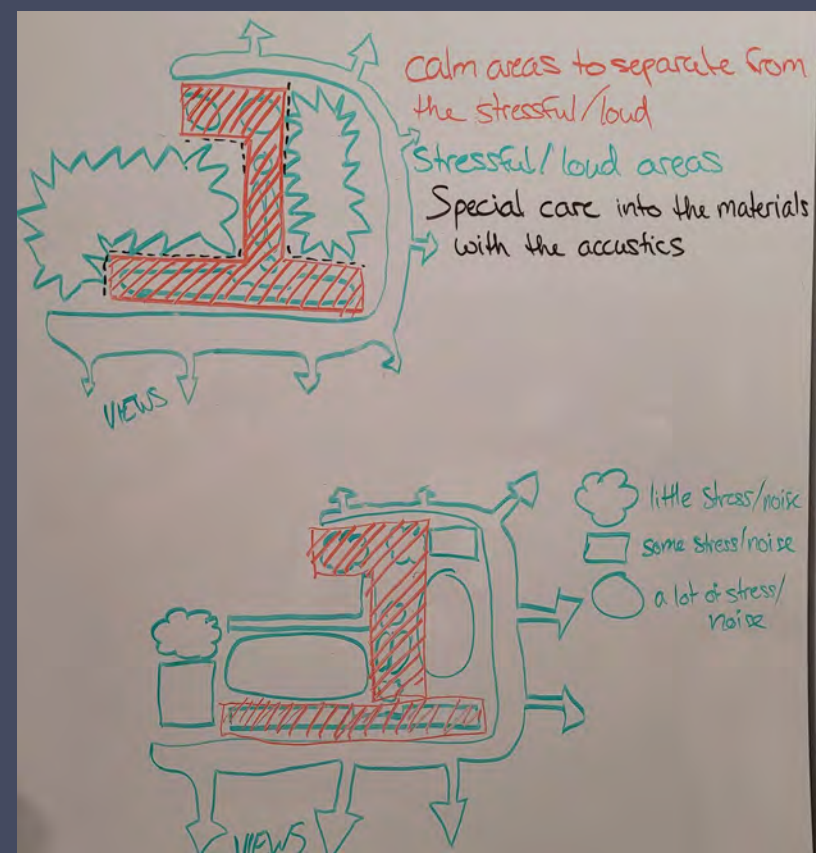 Calm areas to separate from
the stressful/loud
Stressful/loud areas
Special care into the materials
with the accustics
VIEWS
little stress/noise
some stress/noise
a lot of stress/
noise
VIEWS